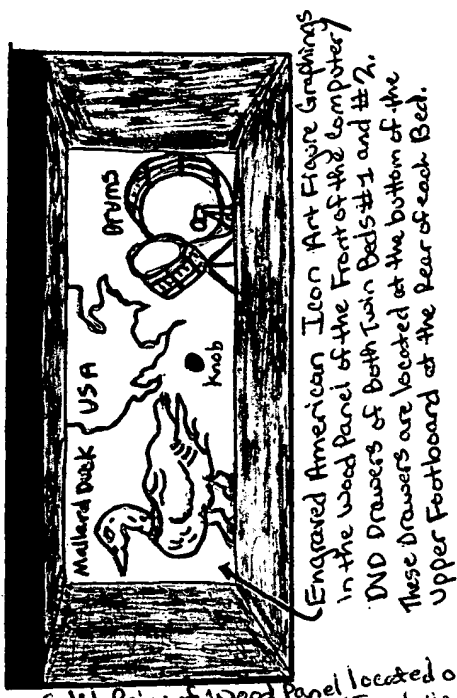 Mallard Duck
USA
Drums
Knob
Engraved American Icon Art Figure Graphings
In the Wood Panel of the Front of the Computer/
DVD Drawers of Both Twin Beds #1 and #2.
These Drawers are located at the buttom of the
Upper Footboard at the Rear of each Bed.
Wood Panel located o